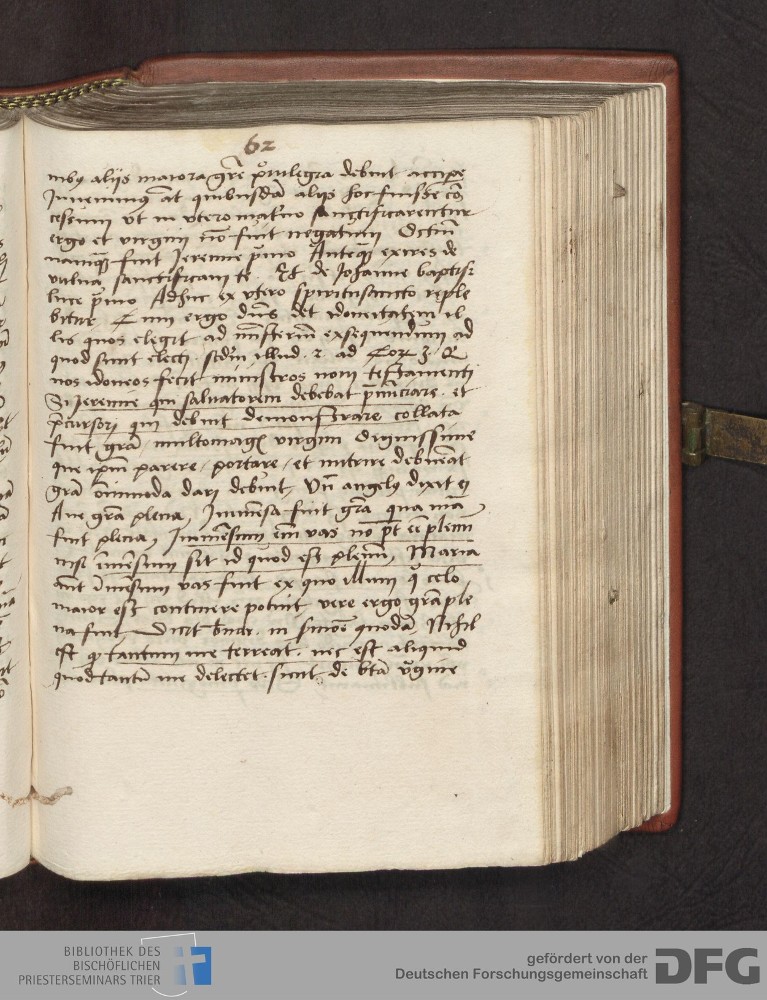 62
nibus aliis maiora grē p̄uilegia debuit accipe
Inuenimus āt quibusdā aliis hoc fuisse cō
cessum vt in vtero mat'no sanctificarentur
ergo et virgini nō fuit negatum Dictū
namq̄ fuit Jeremie p̄mo Anteq̄ exires de
vulua sanctificaui te. Et de Johanne baptista
luce p̄mo Adhuc ex vtero spiritusancto reple
bitur Cum ergo dn̄s det idoneitatem il
lis quos elegit ad mīsteriū exsequendum ad
quod sunt electi. scd'm illud. 2. ad Cor 3. Q
nos idoneos fecit ministros noui testamenti
Si Jeremie qui saluatorem debebat p̄nūciare. et
p̄cursori qui debuit demonstrare collata
fuit grā multomagis virgini dignissime
que ip̄m parere, portare, et nutrire debuerat
grā ōimoda dari debuit, Vn̄ angelus dixit ei
Aue grā plena, Immēsa fuit grā qua mā
fuit plena, Immēsum em̄ vas nō p̄t ēē plenū
nisi īmēsum sit id quod est plenū, Maria
aūt īmēsum vas fuit ex quo illum q̄ celo
maior est continere potuit vere ergo grā ple
na fuit Dicit bnār. in smōe quodā, Nihil
est qd tantum me terreat. nec est aliquid
quod tantū me delectet. sicut de bt̄a v̓gine
BIBLIOTHEK DES
BISCHÖFLICHEN
PRIESTERSEMINARS TRIER
gefördert von der
Deutschen Forschungsgemeinschaft
DFG